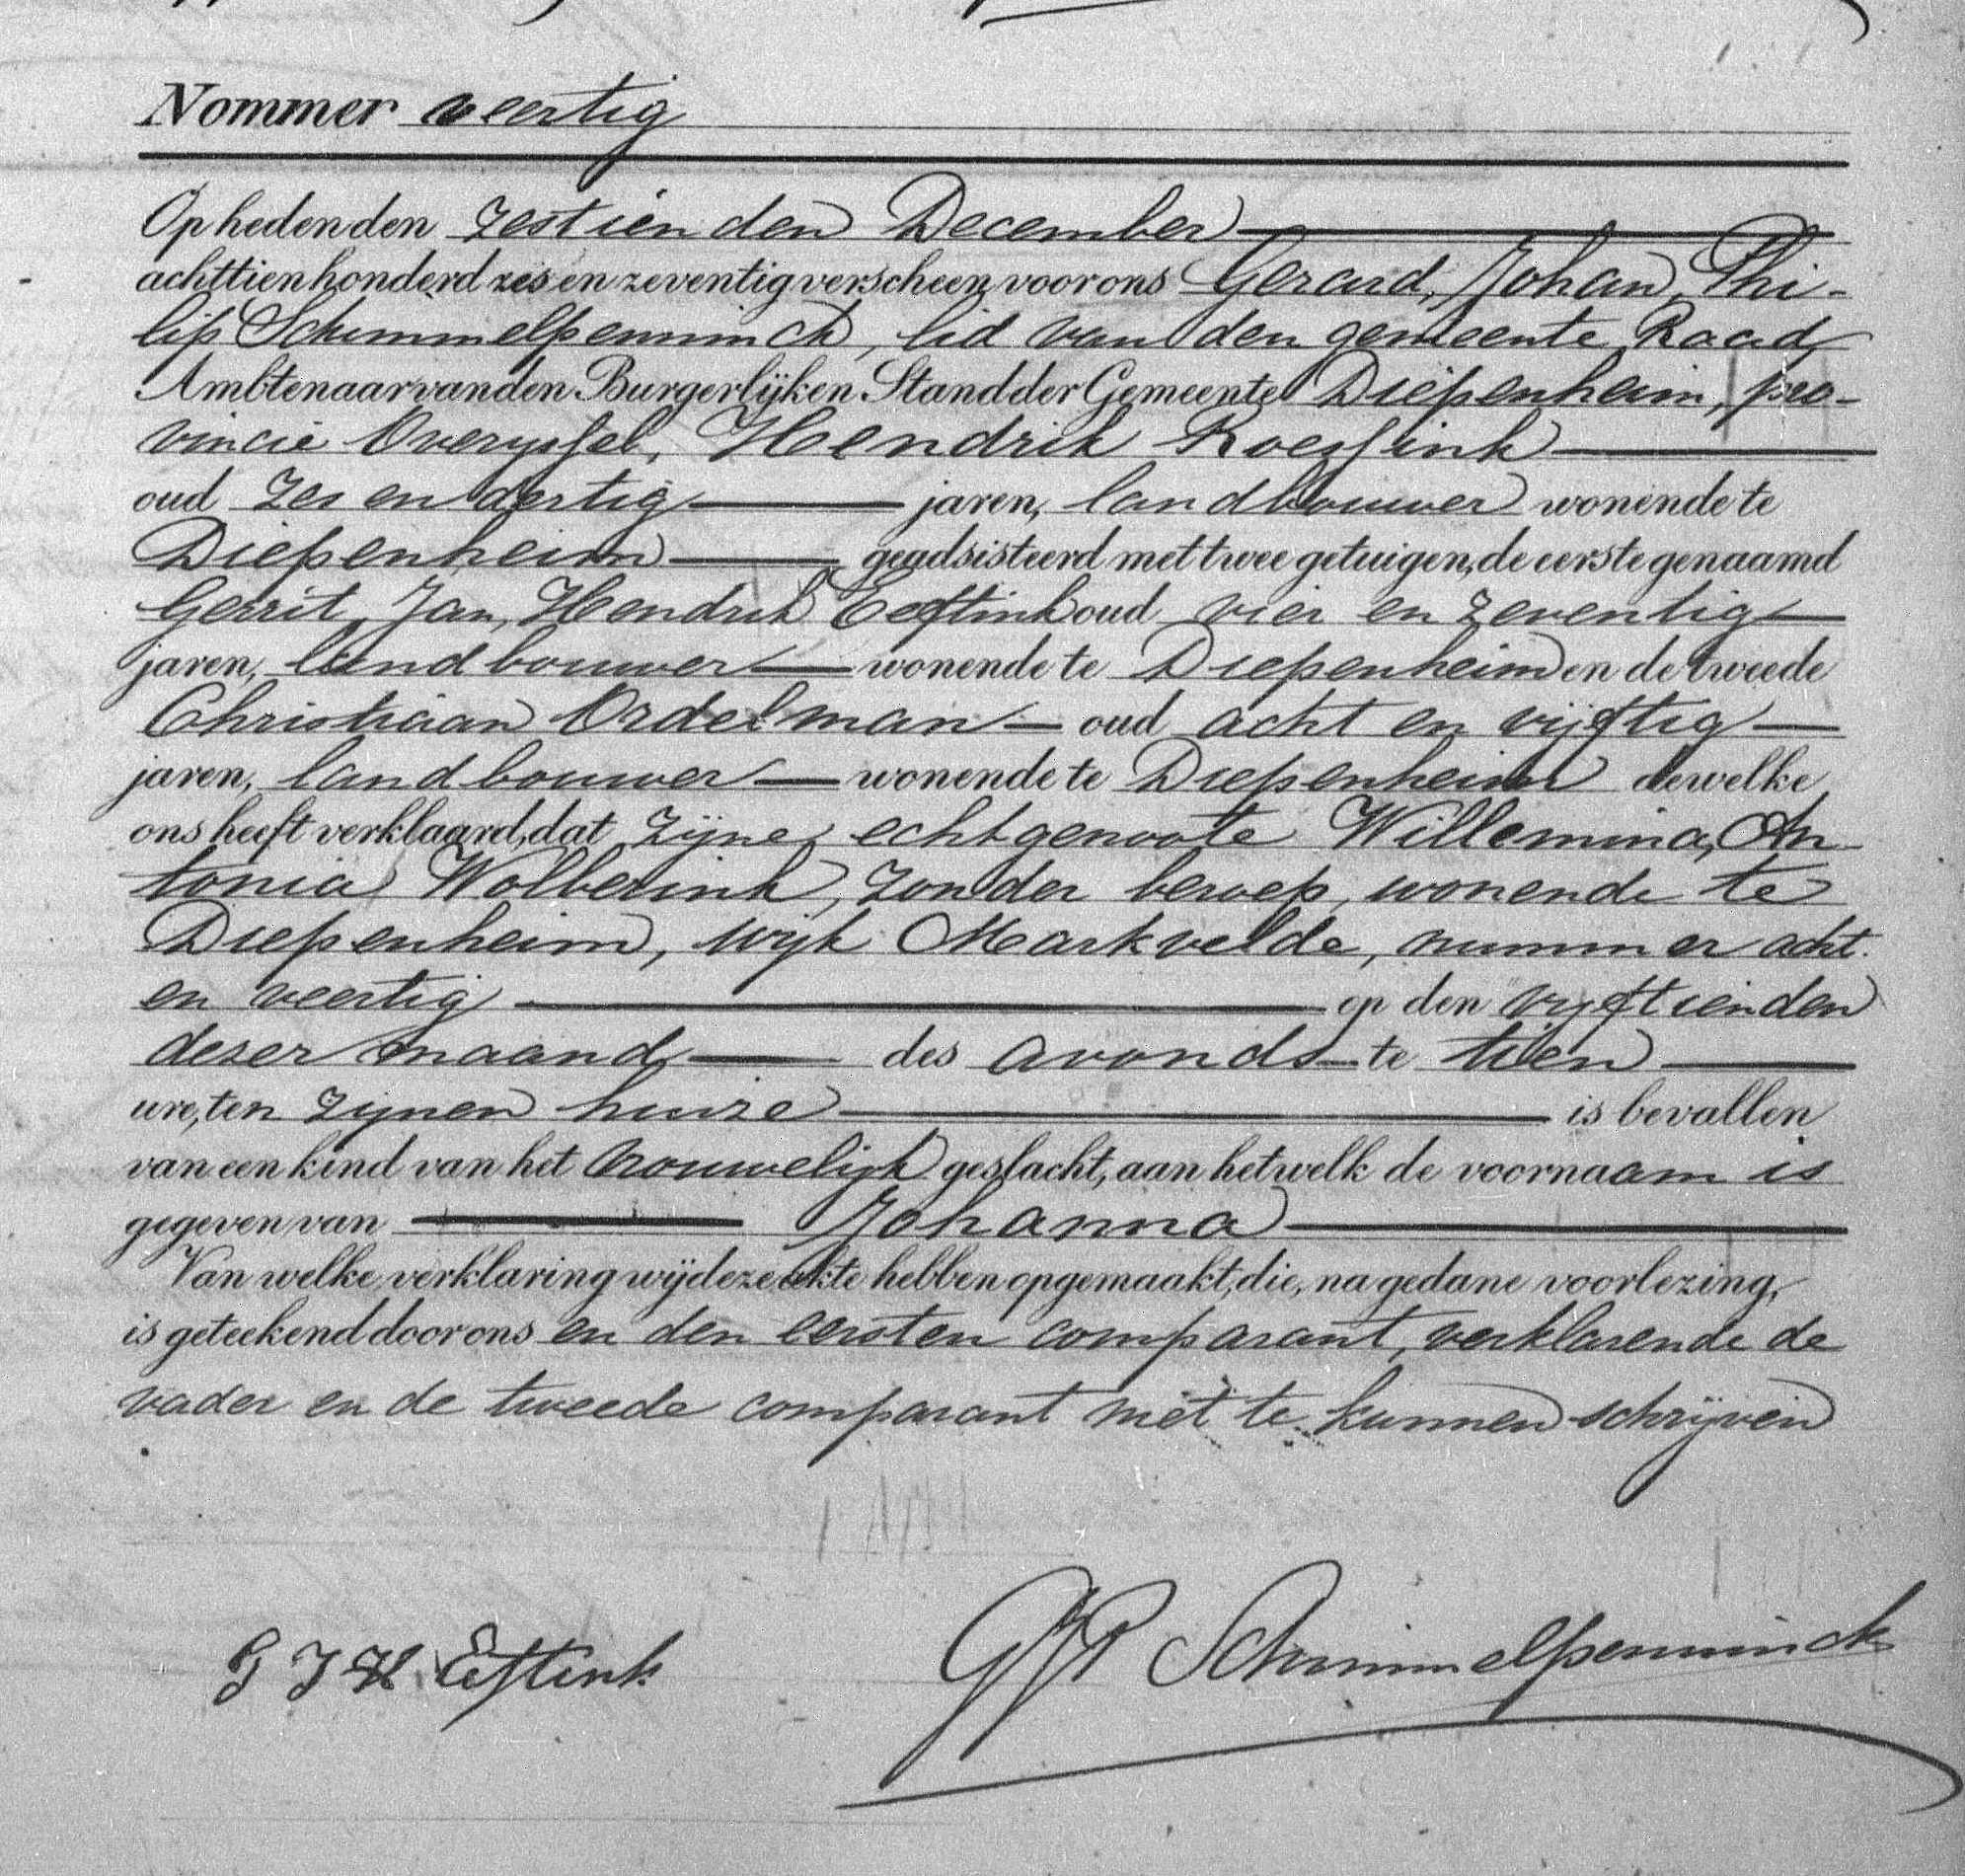 Nommer veertig
Op heden den zestienden December
achttienhonderd zes en zeventig verscheen voor ons Gerard, Johan, Phi-
lip Schimmelpenninck, lid van den gemeente Raad,
Ambtenaar van den Burgerlijken Stand der Gemeente Diepenheim, pro-
vincie Overyssel, Hendrik Roessink
oud zes en dertig jaren, landbouwer wonende te
Diepenheim geadsisteerd met twee getuigen, de eerste genaamd
Gerrit, Jan, Hendrik Eeftink oud vier en zeventig
jaren, landbouwer wonende te Diepenheim en de tweede
Christiaan Ordelman oud acht en vijftig
jaren, landbouwer wonende te Diepenheim dewelke
ons heeft verklaard, dat zijne echtgenoote Willemina, An-
tonia Wolberink, zonder beroep, wonende te
Diepenheim, wijk Markvelde, nummer acht
en veertig op den vyftienden
dezer maand des avonds te tien
ure, ten zynen huize is bevallen
van een kind van het vrouwelijk geslacht, aan hetwelk de voornaam is
gegeven van Johanna
Van welke verklaring wij deze akte hebben opgemaakt, die, na gedane voorlezing,
is geteekend door ons en den eersten comparant, verklarende de
vader en de tweede comparant niet te kunnen schrijven
G J H Eeftink GJP Schimmelpenninck